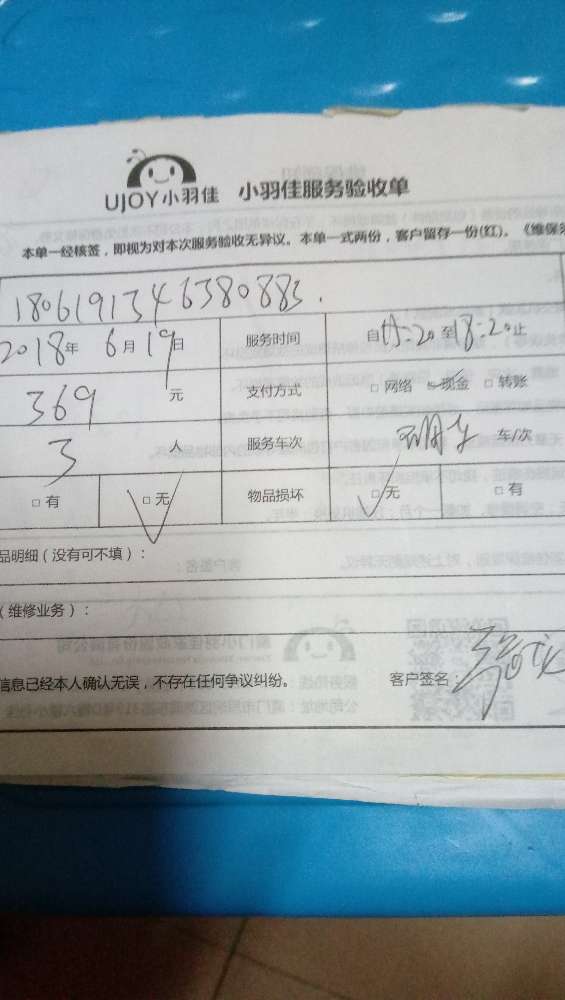 UJOY小羽佳 小羽佳服务验收单
本单一经核签，即视为对本次服务验收无异议。本单一式两份，客户留存一份(红)。《维保
1806191346380883.
2018年 6月19日 服务时间 自15:20至18:20止
369 元 支付方式 □网络 现金 □转账
3 人 服务车次 车/次
□有 □无 物品损坏 □无 □有
品明细（没有可不填）：
（维修业务）：
信息已经本人确认无误，不存在任何争议纠纷。 客户签名：